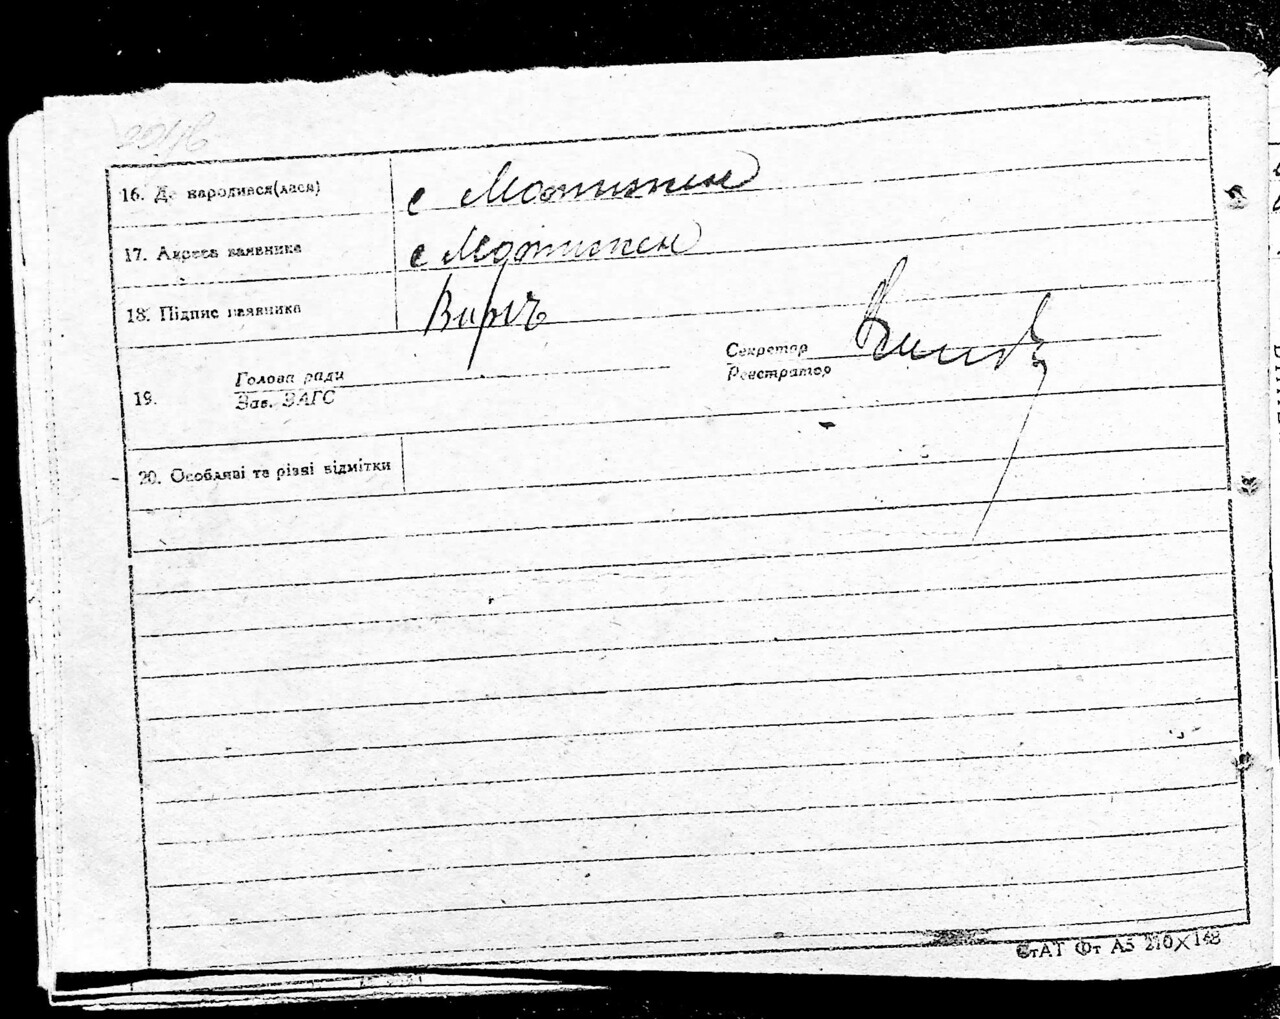 16. Де народився(лася) с Мотижен
17. Адреса заявника с Мотижен
18. Підпис заявника
Секретар
Голова ради
Реєстратор
19.
Зав. ЗАГС
20. Особливі та різні відмітки
СтАТ Фт А5 210×148